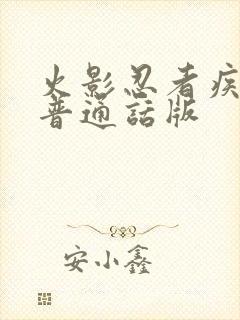 火影忍者疾
普通話版
安小鑫